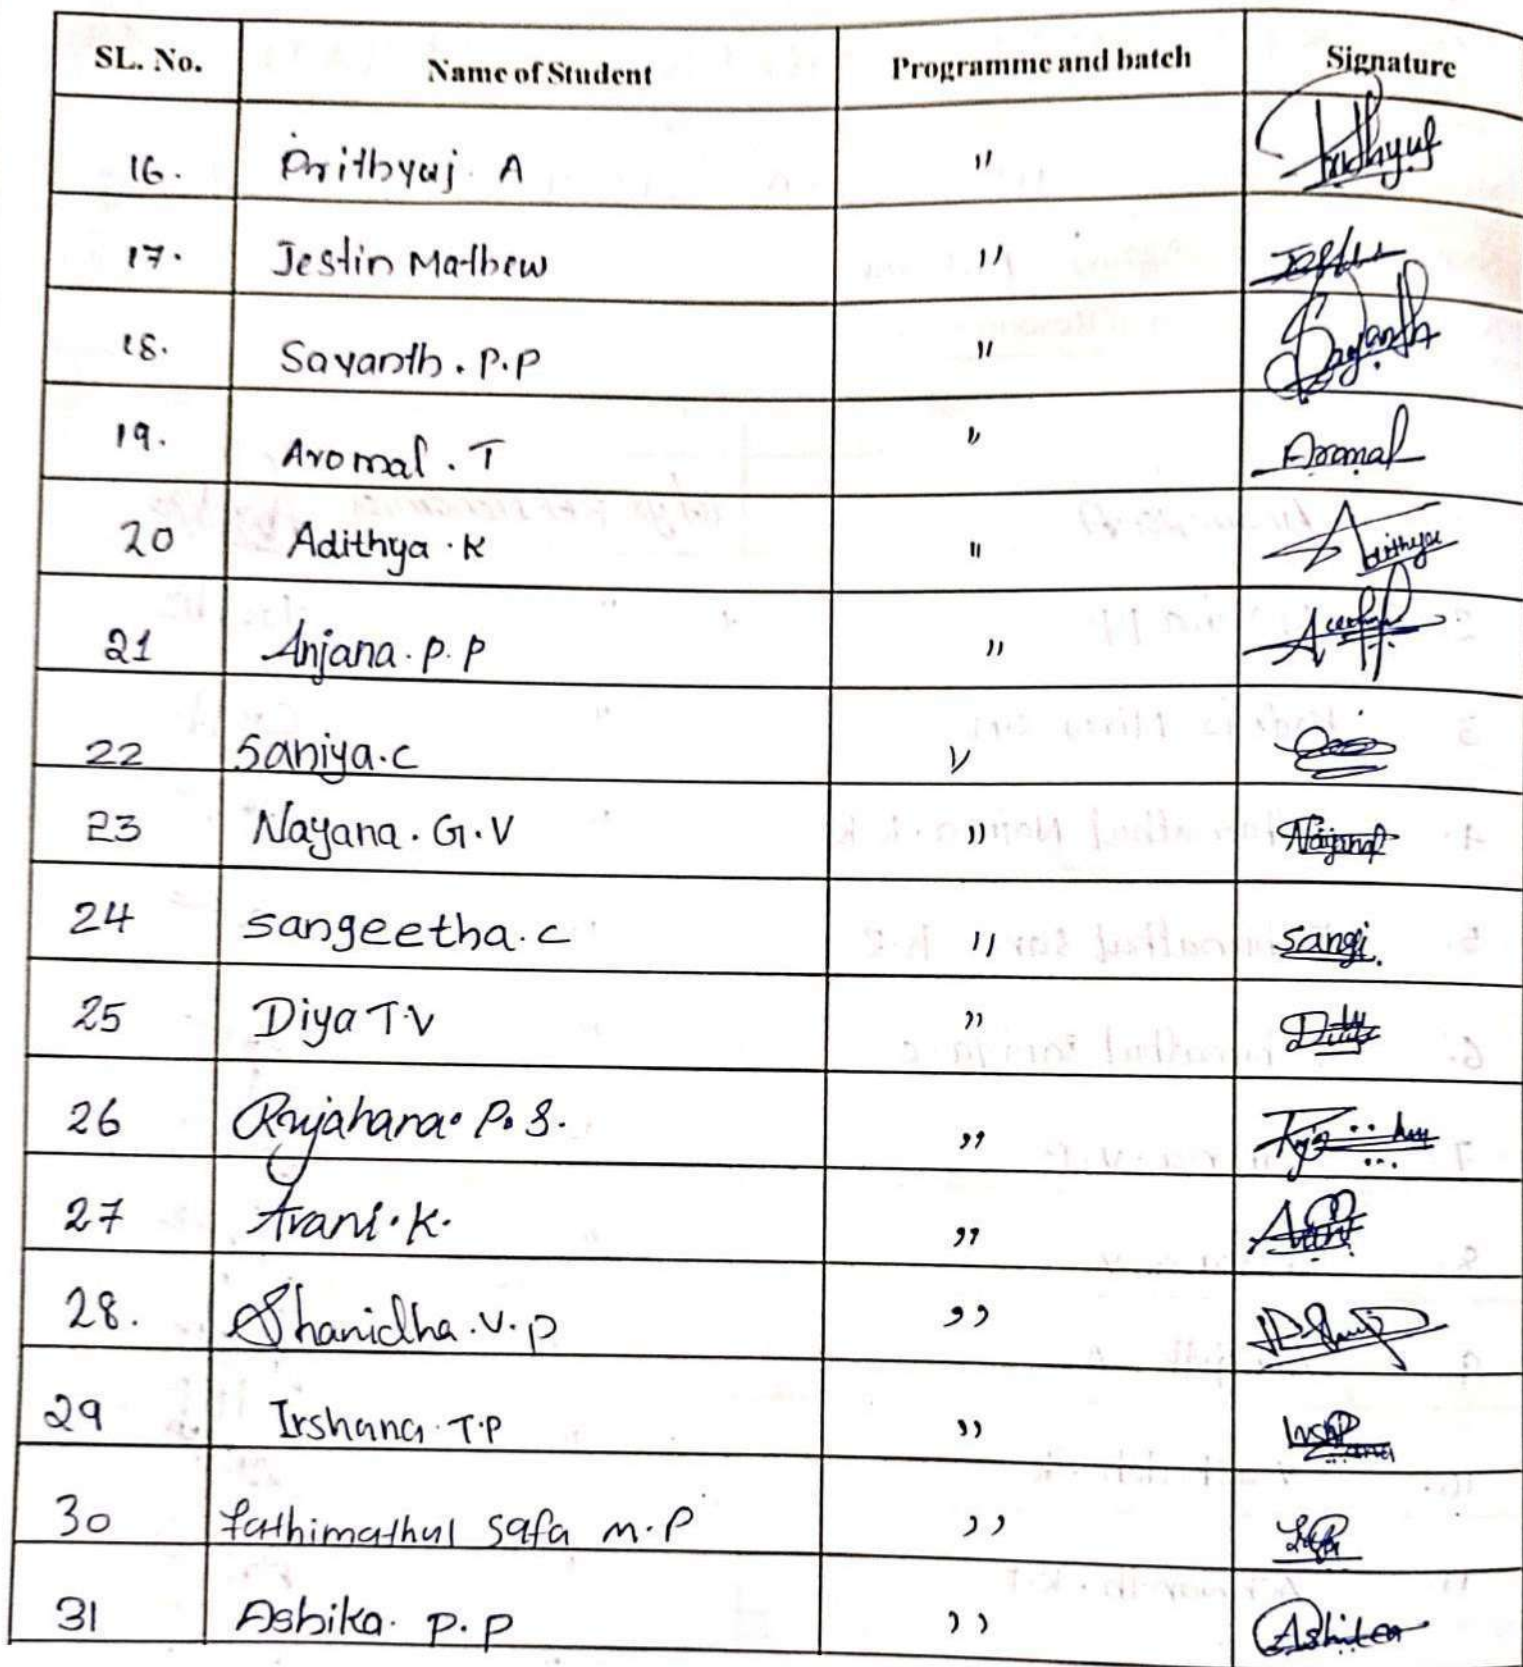 SL. No. Name of Student Programme and batch Signature
16. Prithyuj. A " Prithyuj
17. Jestin Mathew "
18. Sayanth. P.P " Sayanth
19. Aromal. T " Aromal
20 Adithya. K " Adithya
21 Anjana. P. P "
22 Saniya. C "
23 Nayana. G. V " Nayana
24 Sangeetha. C " Sangi
25 Diya T.V " Diya
26 P. S. "
27 Arani. K. "
28. Shanidha. V. P "
29 Irshana. T.P "
30 Fathimathul Safa M. P " Safa
31 Ashika. P. P " Ashika